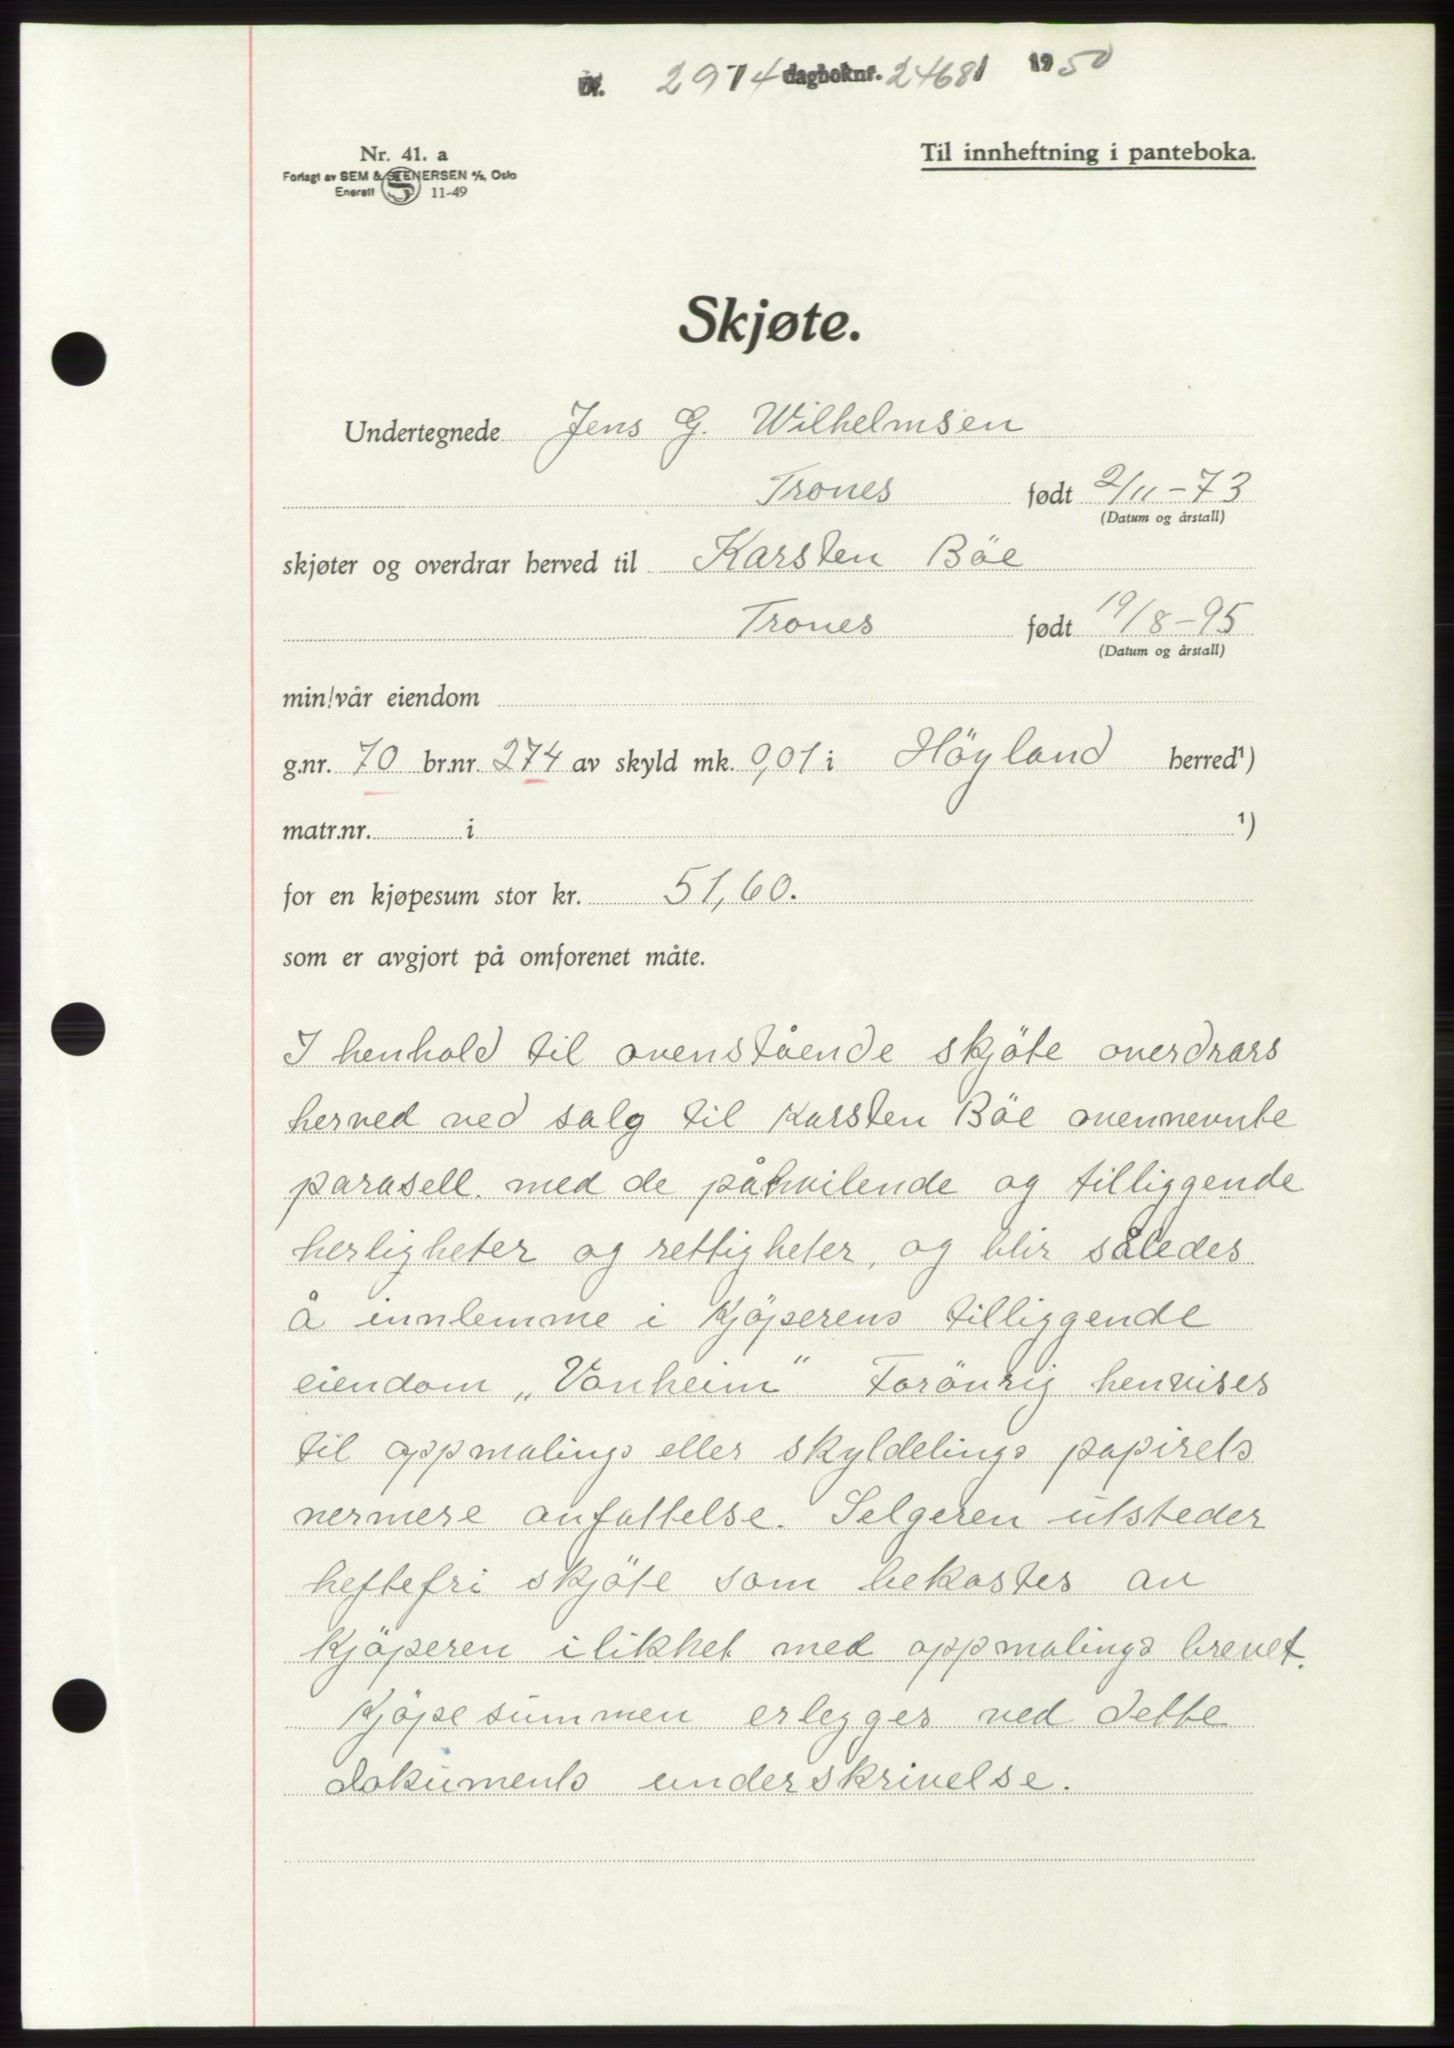 Nr. 2974 dagboknr. 2468 1950
Nr. 41. a
Til innheftning i panteboka.
Forlagt av SEM & STENERSEN A/S, Oslo
Enerett 11-49
Skjøte.
Undertegnede Jens G. Wilhelmsen
Trones født 2/11-73
(Datum og årstall)
skjøter og overdrar herved til Karsten Böe
Trones født 19/8-95
(Datum og årstall)
min/vår eiendom
g.nr. 70 br.nr. 274 av skyld mk. 0,01 i Höyland herred¹)
matr.nr. i ¹)
for en kjøpesum stor kr. 51,60.
som er avgjort på omforenet måte.
I henhold til ovenstående skjöte overdrars
herved ved salg til Karsten Böe ovennevnte
parasell. med de påhvilende og tilliggende
herligheter og rettigheter, og blir således
å innlemme i Kjöperens tilliggende
eiendom „Vonheim" Forövrig henvises
til oppmalings eller skyldelings papirets
nermere anfattelse. Selgeren utsteder
heftefri skjöte som bekostes av
Kjöperen ilikhet med oppmalings brevet.
Kjöpesummen erlegges ved dette
dokuments underskrivelse.